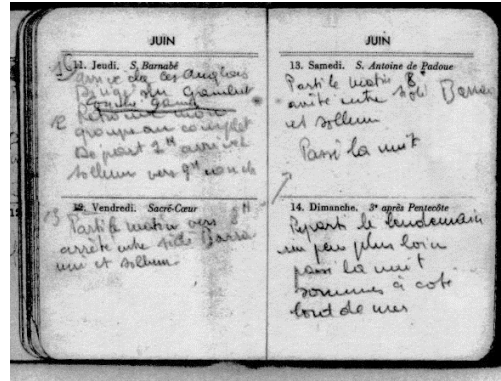 JUIN
11. Jeudi. S. Barnabé
arrivée des anglais
groupe au complet
Départ 2H arrivée
sollum vers 9H
12. Vendredi. Sacré-Cœur
13 Parti le matin vers 8H
arrête entre sidi Barra
ni et sollum
JUIN
13. Samedi. S. Antoine de Padoue
Parti le matin 8H
arrête entre sidi Barra
et sollum
Passé la nuit
14. Dimanche. 3e après Pentecôte
Reparti le lendemain
un peu plus loin
passé la nuit
sommes à coté
bout de mer